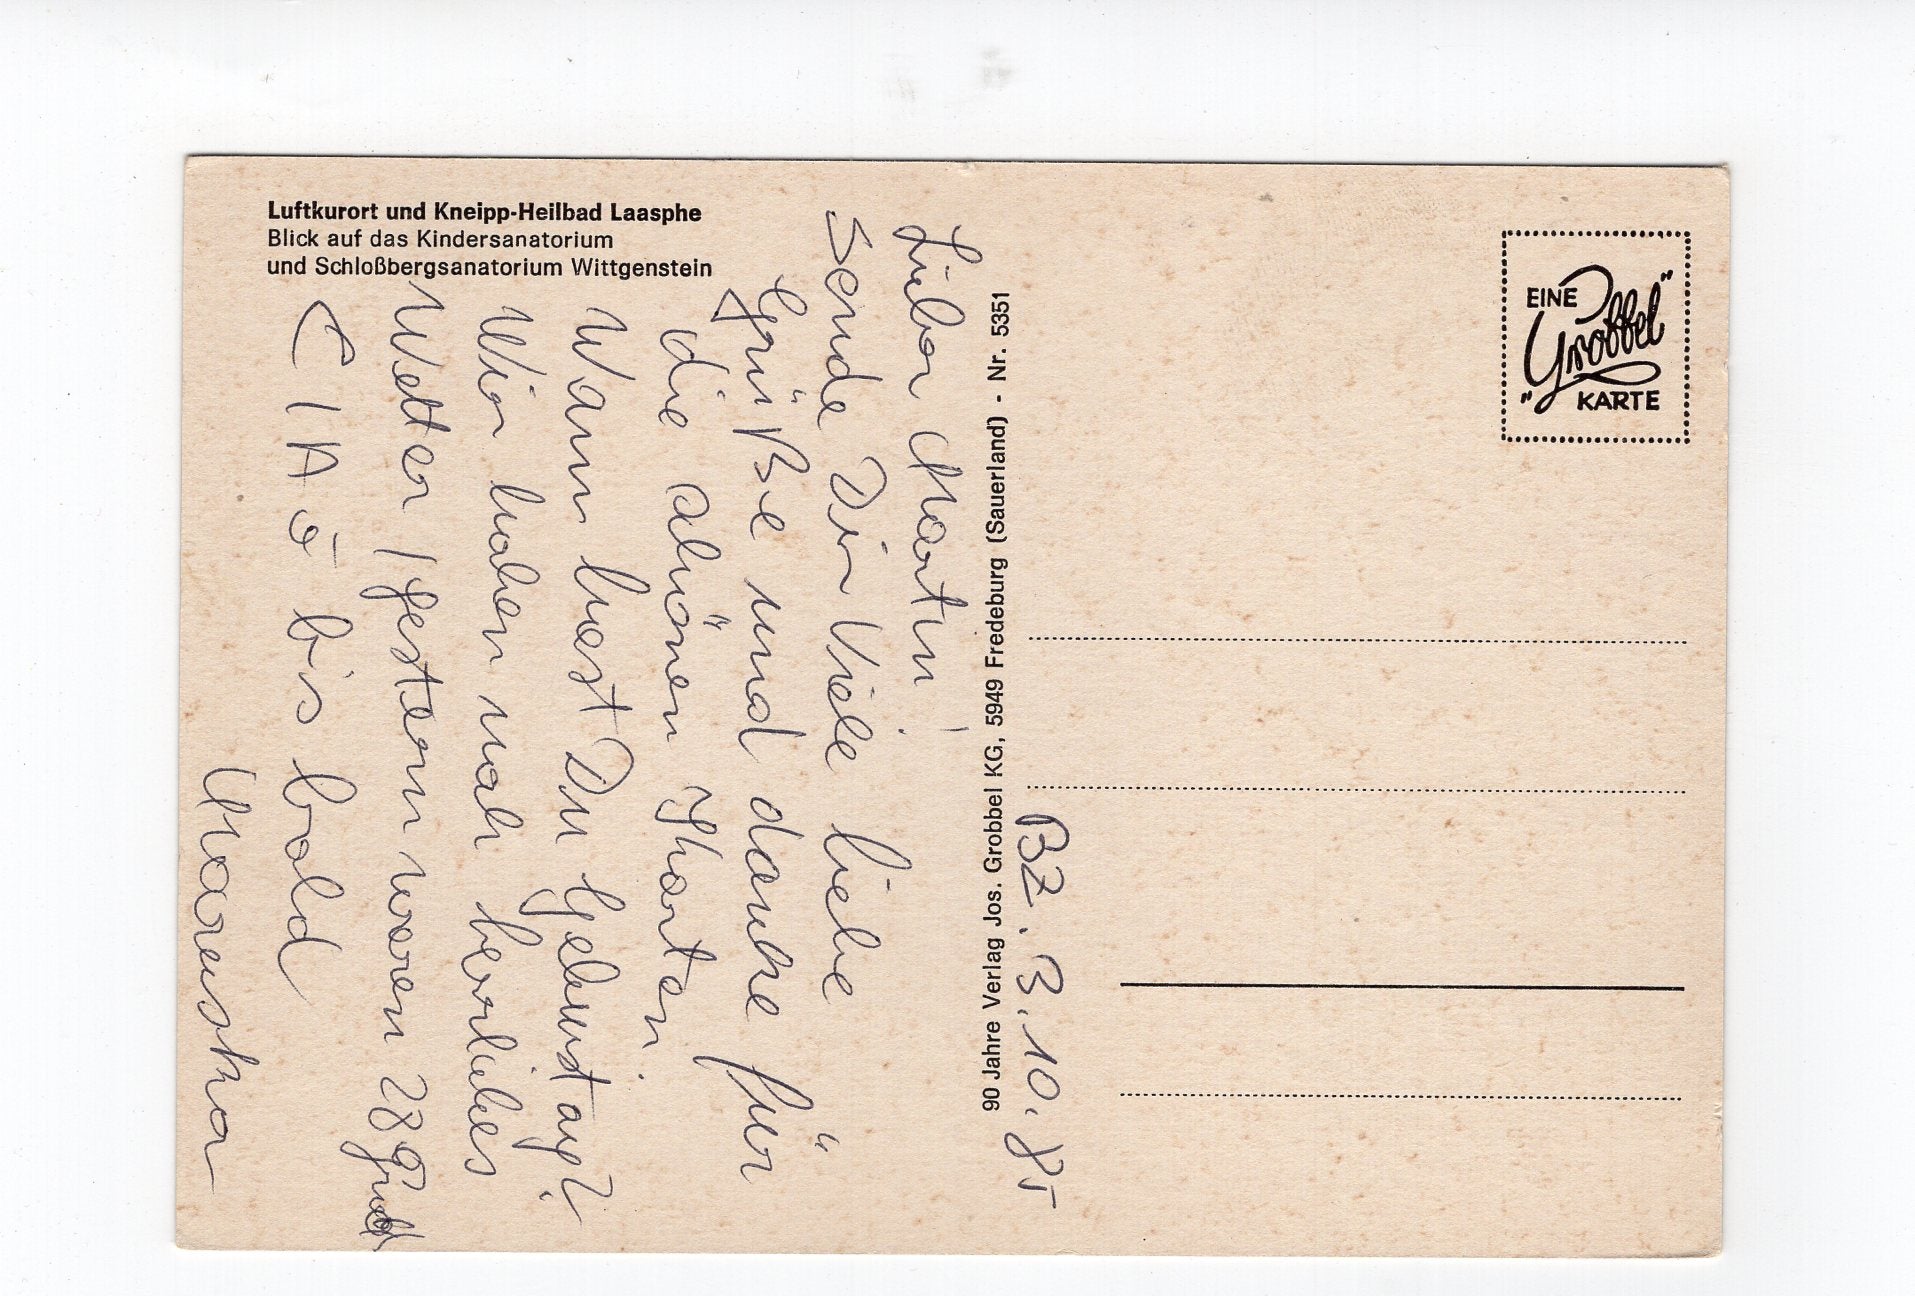 Luftkurort und Kneipp-Heilbad Laasphe
Blick auf das Kindersanatorium
und Schloßbergsanatorium Wittgenstein
Lieber Martin!
Sende Dir Viele liebe
Grüße und danke für
die schönen Karten.
Wann hast Du Geburstag?
Wir haben noch herrliches
Wetter, gestern waren 28 Grad
CIAO bis bald
Maruska
90 Jahre Verlag Jos. Grobbel KG, 5949 Fredeburg (Sauerland) - Nr. 5351
BZ. 3.10.85
EINE
„Grobbel“
KARTE